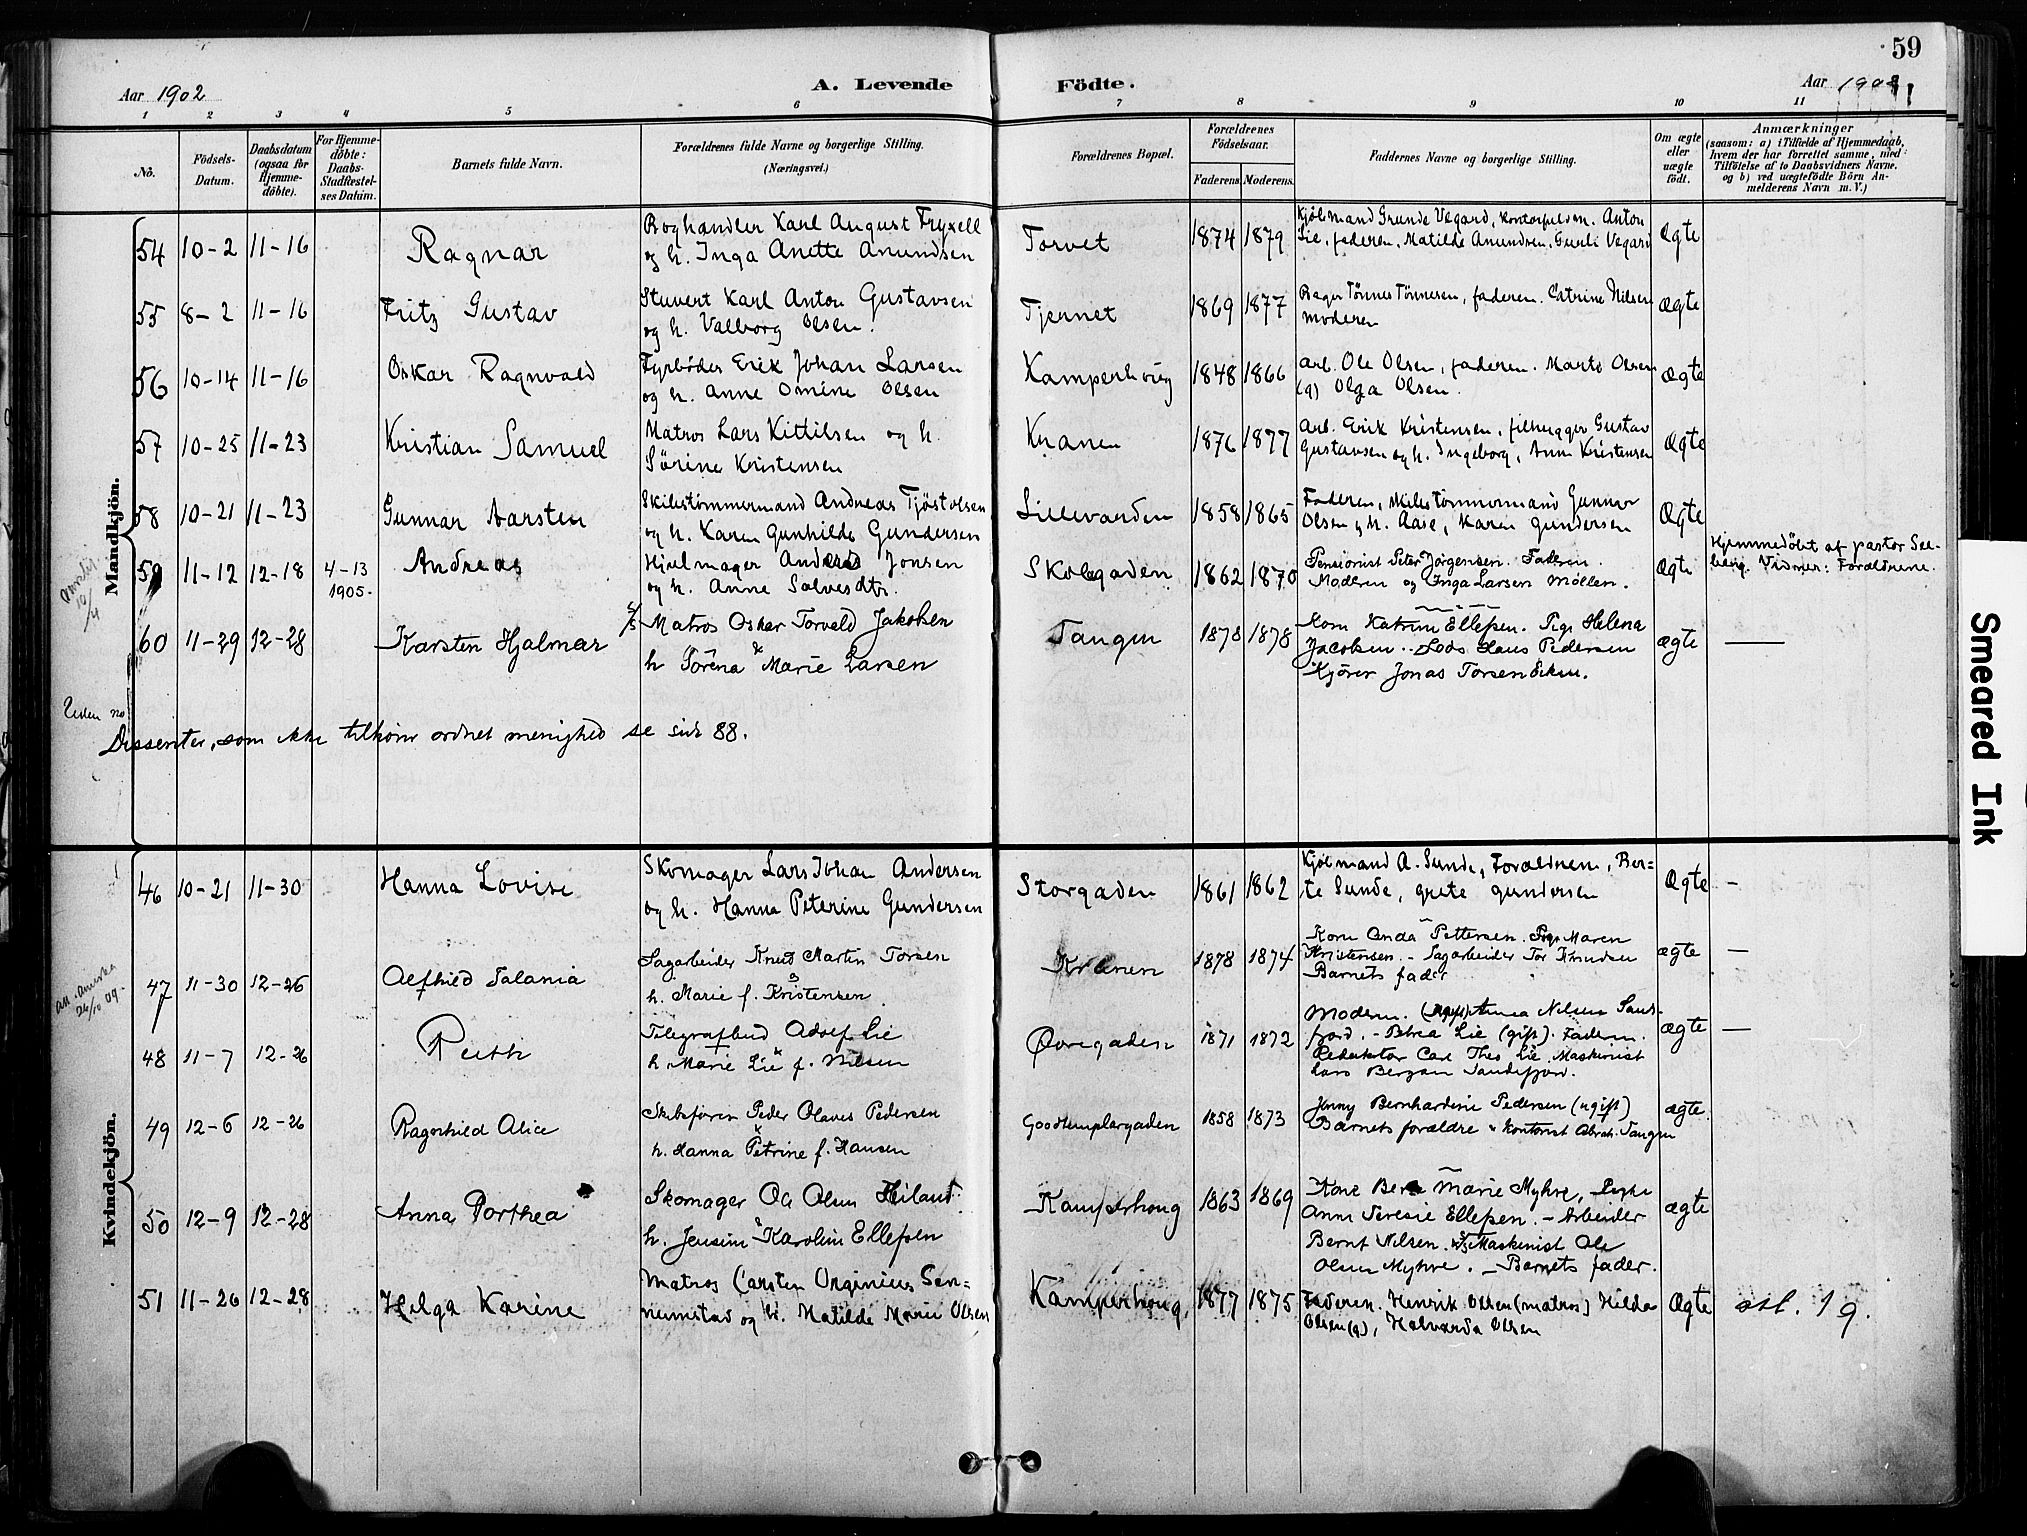 59
Aar 1902
A. Levende Födte.
Aar 190
1 2 3 4 5 6 7 8 9 10 11
No.
Födsels-Datum.
Daabsdatum (ogsaa for Hjemme-döbte).
For Hjemme-döbte: Daabs-Stadfæstel-ses Datum.
Barnets fulde Navn.
Forældrenes fulde Navne og borgerlige Stilling.
(Næringsvei.)
Forældrenes Bopæl.
Forældrenes Födselsaar.
Faderens. Moderens.
Faddernes Navne og borgerlige Stilling.
Om ægte eller uægte födt.
Anmærkninger
(saasom: a) i Tilfælde af Hjemmedaab, hvem der har forrettet samme, med Tilföielse af to Daabsvidners Navne. og b) ved uægtefödte Börn An-melderens Navn m. V.)
Mandkjön.
54 10-2 11-16 Ragnar
Boghandler Karl August Fryxell
og h. Inga Anette Amundsen
Torvet 1874 1879
Kjølmand Grunde Vegard, Kontorfuldm. Anton
Lie, faderen, Matilde Amundsen, Gurli Vegard
Ægte
55 8-2 11-16 Fritz Gustav
Stuvert Karl Anton Gustavsen
og h. Valborg Olsen.
Tjernet 1869 1877
Bager Tønnes Tønnesen, faderen. Catrine Nilsen
moderen
Ægte
56 10-14 11-16 Oskar Ragnvald
Fyrbøder Erik Johan Larsen
og h. Anne Omine Olsen
Kamperhoug 1848 1866
Arb. Ole Olsen, faderen. Marte Olsen
(g) Olga Olsen.
Ægte
57 10-25 11-23 Kristian Samuel
Matros Lars Kittilsen og h.
Sørine Kristensen
Kranen 1876 1877
Arb. Erik Kristensen, filhugger Gustav
Gustavsen og h. Ingeborg, Anne Kristensen
Ægte
58 10-21 11-23 Gunnar Aarsten
Skibstømmermand Andreas Tjøstolsen
og h. Karen Gunhilde Gundersen
Lillevarden 1858 1865
Faderen, skibstømmermand Gunnar
Olsen og h. Aase, Karen Gundersen
Ægte
59 11-12 12-18 4-13
1905.
Andreas
Hjulmager Anders Jonsen
og h. Anne Salvesdtr.
Skolegaden 1862 1870
Pensionist Peter Jørgensen. Faderen.
Moderen og Inga Larsen Møllen.
Ægte
Hjemmedøbt af pastor See-
berg. Vidner: Forældrene.
10/4
60 11-29 12-28 Karsten Hjalmar
Matros Oskar Torvald Jakobsen
h Sørena Marie Larsen
Tangen 1878 1878
Kone Katrine Ellefsen. Pige Helena
Jacobsen. Lods Hans Pedersen
Kjører Jonas Torsen Eken.
ægte —
Uden no
Dissenter, som ikke tilhører ordnet menighed se side 88.
Kvindekjön.
46 10-21 11-30 Hanna Lovise
Skomager Lars Johan Andersen
og h. Hanna Peterine Gundersen
Storgaden 1861 1862
Kjølmand A. Sunde, Forældrene, Ber-
te Sunde, Grete Gundersen
Ægte —
47 11-30 12-26 Alfhild Talania
Sagarbeider Knud Martin Torsen
h. Marie f. Kristensen
Kranen 1878 1874
Kone Anda Pettersen. Pige Maren
Kristensen. - Sagarbeider Tor Knudsen
Barnets fader
ægte —
48 11-7 12-26 Ruth
Telegrafbud Adolf Lie
h Marie Lie f. Nilsen
Øvregaden 1871 1872
Moderen. (ugift) Anna Nilsen Sand-
fjord. - Petrea Lie (gift). Faderen.
Redaktør Carl Thes. Lie. Maskinist
Lars Bergan Sandefjord.
ægte —
49 12-6 12-26 Ragnhild Alice
Skibsfører Peder Olaves Pedersen
h. Hanna Petrine f. Hansen
Goodtemplargaden 1858 1873
Jenny Bernhardine Pedersen (ugift)
Barnets forældre Kontorist Abrah. Tangen
ægte.
50 12-9 12-28 Anna Dorthea
Skomager Ole Olsen Heiland
h. Jensine Karoline Ellefsen
Kamperhoug 1863 1869
Kone Marie Myhre, Pige
Anne Teresie Ellefsen. - Arbeider
Bernt Nilsen. Maskinist Ole
Olsen Myhre. - Barnets fader.
ægte
51 11-26 12-28 Helga Karine
Matros Carsten Orginius Sen-
numstad og h. Matilde Marie Olsen
Kamperhoug. 1877 1875
Faderen. Henrik Olsen (matros) Hilda
Olsen (g), Halvarda Olsen
Ægte
att. 19.
Smeared Ink